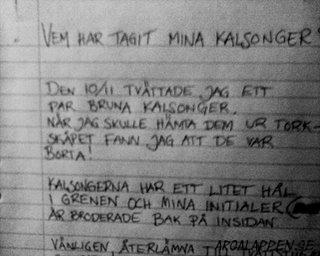 VEM HAR TAGIT MINA KALSONGER
DEN 10/11 TVÄTTADE JAG ETT
PAR BRUNA KALSONGER.
NÄR JAG SKULLE HÄMTA DEM UR TORK-
SKÅPET FANN JAG ATT DE VAR
BORTA!
KALSONGERNA HAR ETT LITET HÅL
I GRENEN OCH MINA INITIALER
ÄR BRODERADE BAK PÅ INSIDAN
VÄNLIGEN, ÅTERLÄMNA
ARGALAPPEN.SE